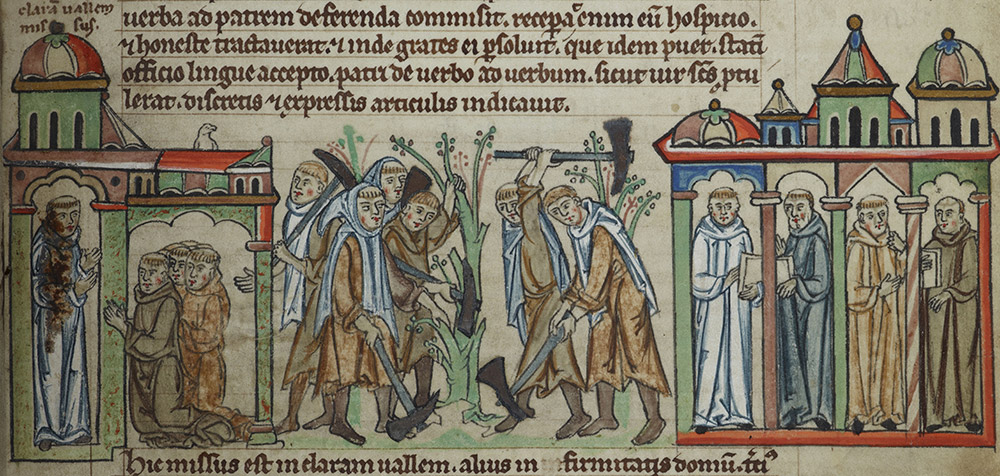 clarā uallem
mis sus.
uerba ad patrem deferenda commisit. recepa͛ enim eū hospicio.
⁊ honeste tractauerat. ⁊ inde grates ei ꝑsoluit. que idem puer. statī
officio lingue accepto. patri de uerbo ad uerbum. sicut uir scs̄ ptu
lerat. discretis ⁊ expressis articulis indicauit.
Hic missus est in claram uallem. alius in firmitatis domū.